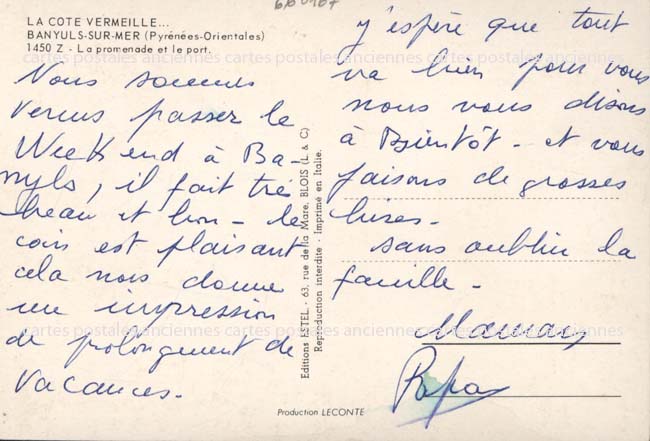 LA COTE VERMEILLE...
BANYULS-SUR-MER (Pyrénées-Orientales)
1450 Z - La promenade et le port.
Nous sommes
venus passer le
Week end à Ba-
nyls, il fait très
beau et bon - le
coin est plaisant
cela nous donne
une impression
de prolongement de
vacances.
Editions ESTEL - 63, rue de la Mare, BLOIS (L. & C.)
Reproduction interdite - Imprimé en Italie.
j'espère que tout
va bien pour vous
nous vous disons
à Bientôt - et vous
faisons de grosses
bises -
sans oublier la
famille -
Maman
Papa
Production LECONTE
cartes postales anciennes cartes postales anciennes cartes postales anciennes
cartes postales anciennes cartes postales anciennes cartes postales anciennes